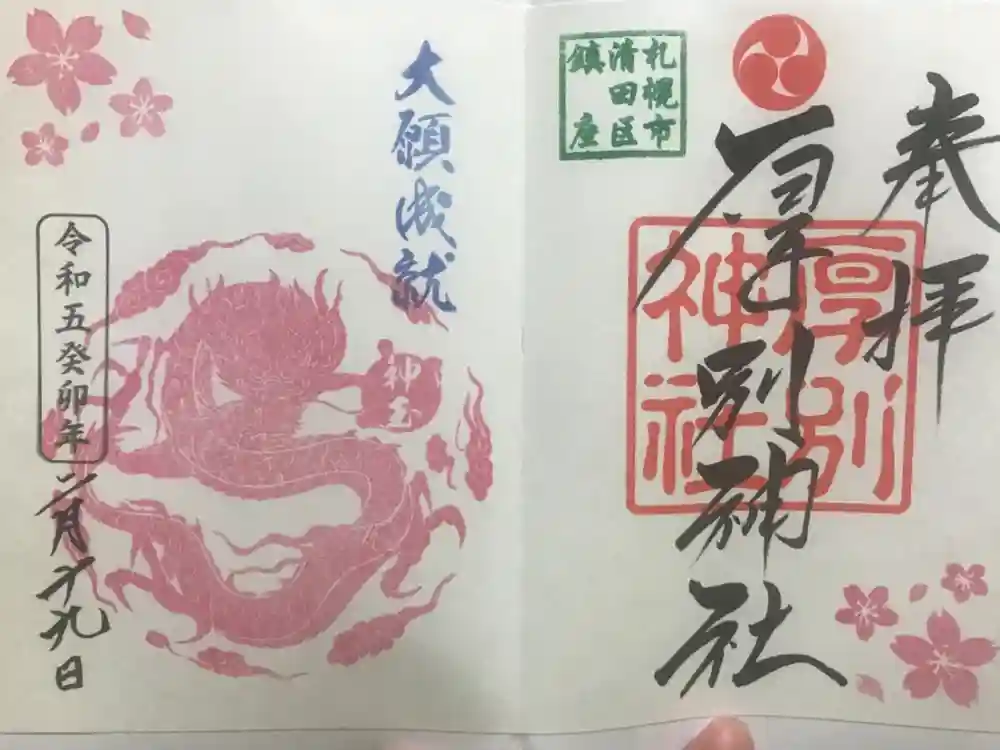 奉拝
厚別神社
厚別
神社
札幌市
清田区
鎮座
大願成就
神玉
令和五癸卯年
二月十九日